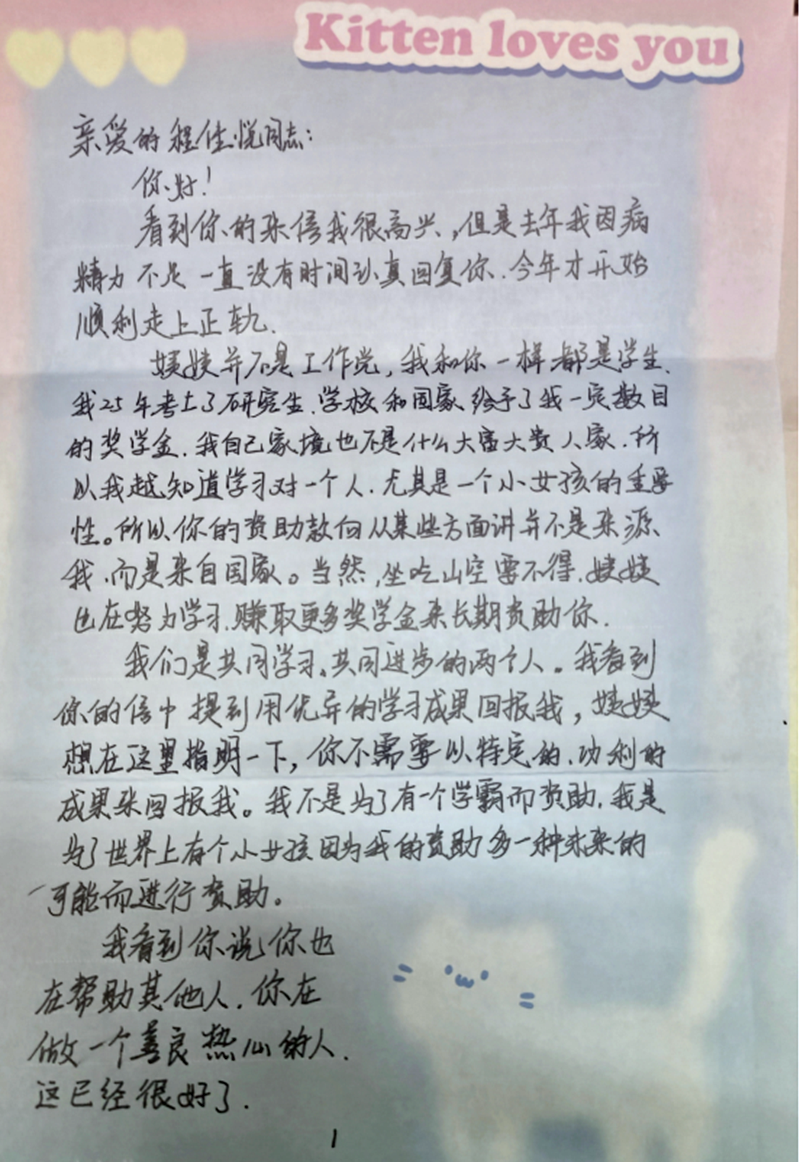 Kitten loves you
亲爱的程佳悦同志：
你好！
看到你的来信我很高兴，但是去年我因病
精力不足一直没有时间认真回复你.今年才开始
顺利走上正轨.
姨姨并不是工作党，我和你一样都是学生.
我25年考上了研究生.学校和国家给予了我一定数目
的奖学金.我自己家境也不是什么大富大贵人家.所
以我越知道学习对一个人.尤其是一个小女孩的重要
性。所以你的资助款向从某些方面讲并不是来源
我.而是来自国家。当然,坐吃山空要不得.姨姨
也在努力学习.赚取更多奖学金来长期资助你.
我们是共同学习、共同进步的两个人。我看到
你的信中提到用优异的学习成果回报我，姨姨
想在这里指明一下，你不需要以特定的、功利的
成果来回报我。我不是为了有一个学霸而资助.我是
为了世界上有个小女孩因为我的资助多一种未来的
可能而进行资助。
我看到你说你也
在帮助其他人.你在
做一个善良热心的人.
这已经很好了.
1